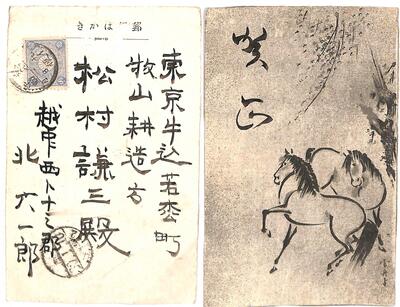 郵便はかき
東京牛込若松町
牧山耕造方
松村謙三殿
越中西トナミ郡
北六一郎
賀正